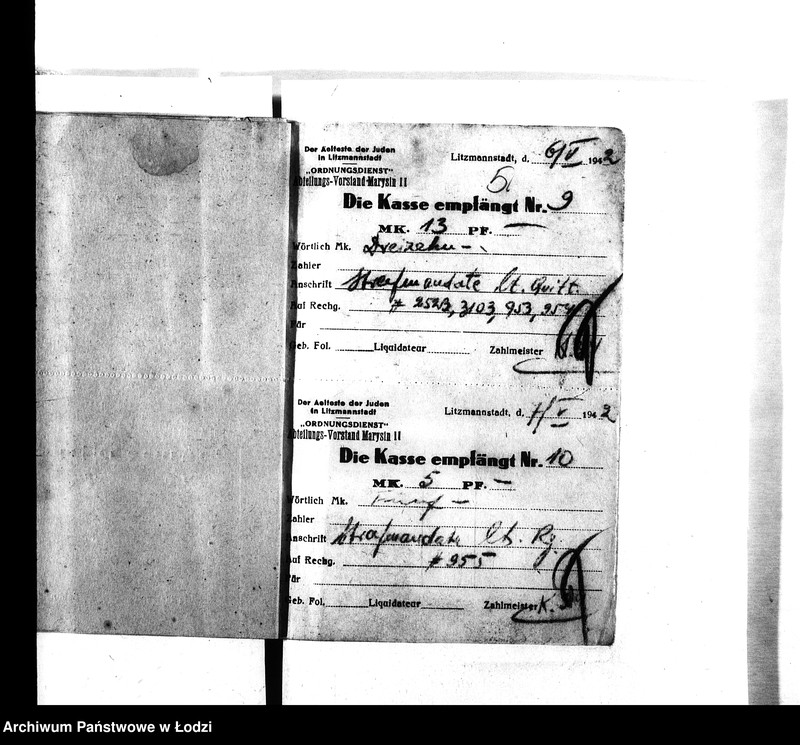 Der Aelteste der Juden
in Litzmannstadt
„ORDNUNGSDIENST“
Abteilungs-Vorstand-Marysin II
Litzmannstadt, d. 6/V 1942
5.
Die Kasse empfängt Nr. 9
MK. 13 PF. —
Wörtlich Mk. Dreizehn -
Zahler
Anschrift Strafmandate lt. Quitt.
Auf Rechg. # 2523, 3103, 953, 954
Für
Geb. Fol. Liquidateur Zahlmeister
Der Aelteste der Juden
in Litzmannstadt
„ORDNUNGSDIENST“
Abteilungs-Vorstand Marysin II
Litzmannstadt, d. 7/V 1942
Die Kasse empfängt Nr. 10
MK. 5 PF. —
Wörtlich Mk. Fünf -
Zahler
Anschrift Strafmandate lt. Rg.
Auf Rechg. # 955
Für
Geb. Fol. Liquidateur Zahlmeister
Archiwum Państwowe w Łodzi